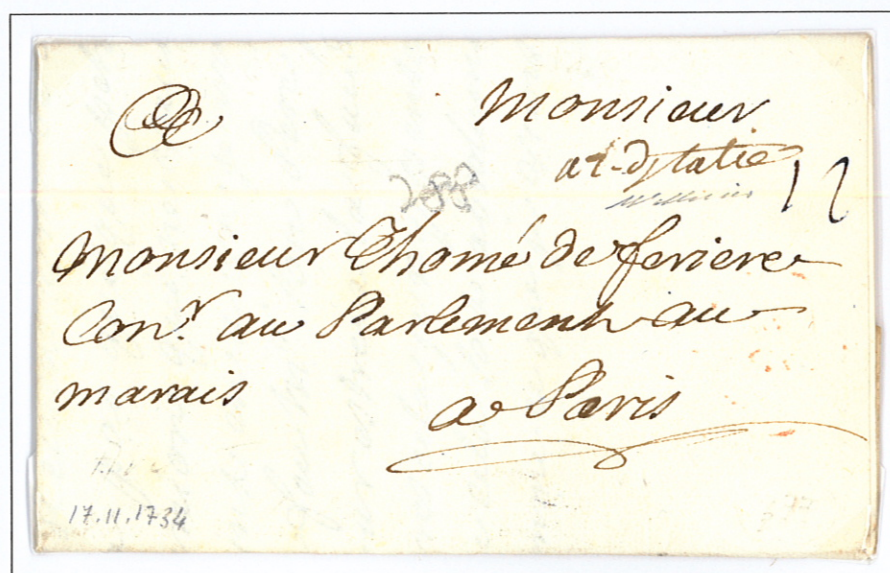 Monsieur
ar. d'Italie
12
288
Monsieur Thomé de feriere
Con.r au Parlement au
marais
a Paris
17.11.1734